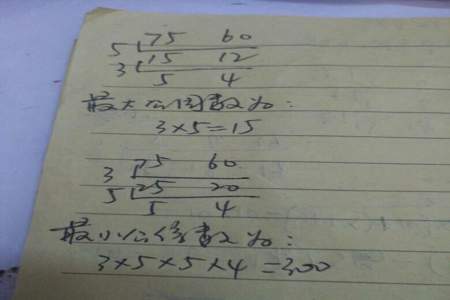 5 75 60
3 15 12
5 4
最大公因数为:
3×5=15
3 75 60
5 25 20
5 4
最小公倍数为:
3×5×5×4=300